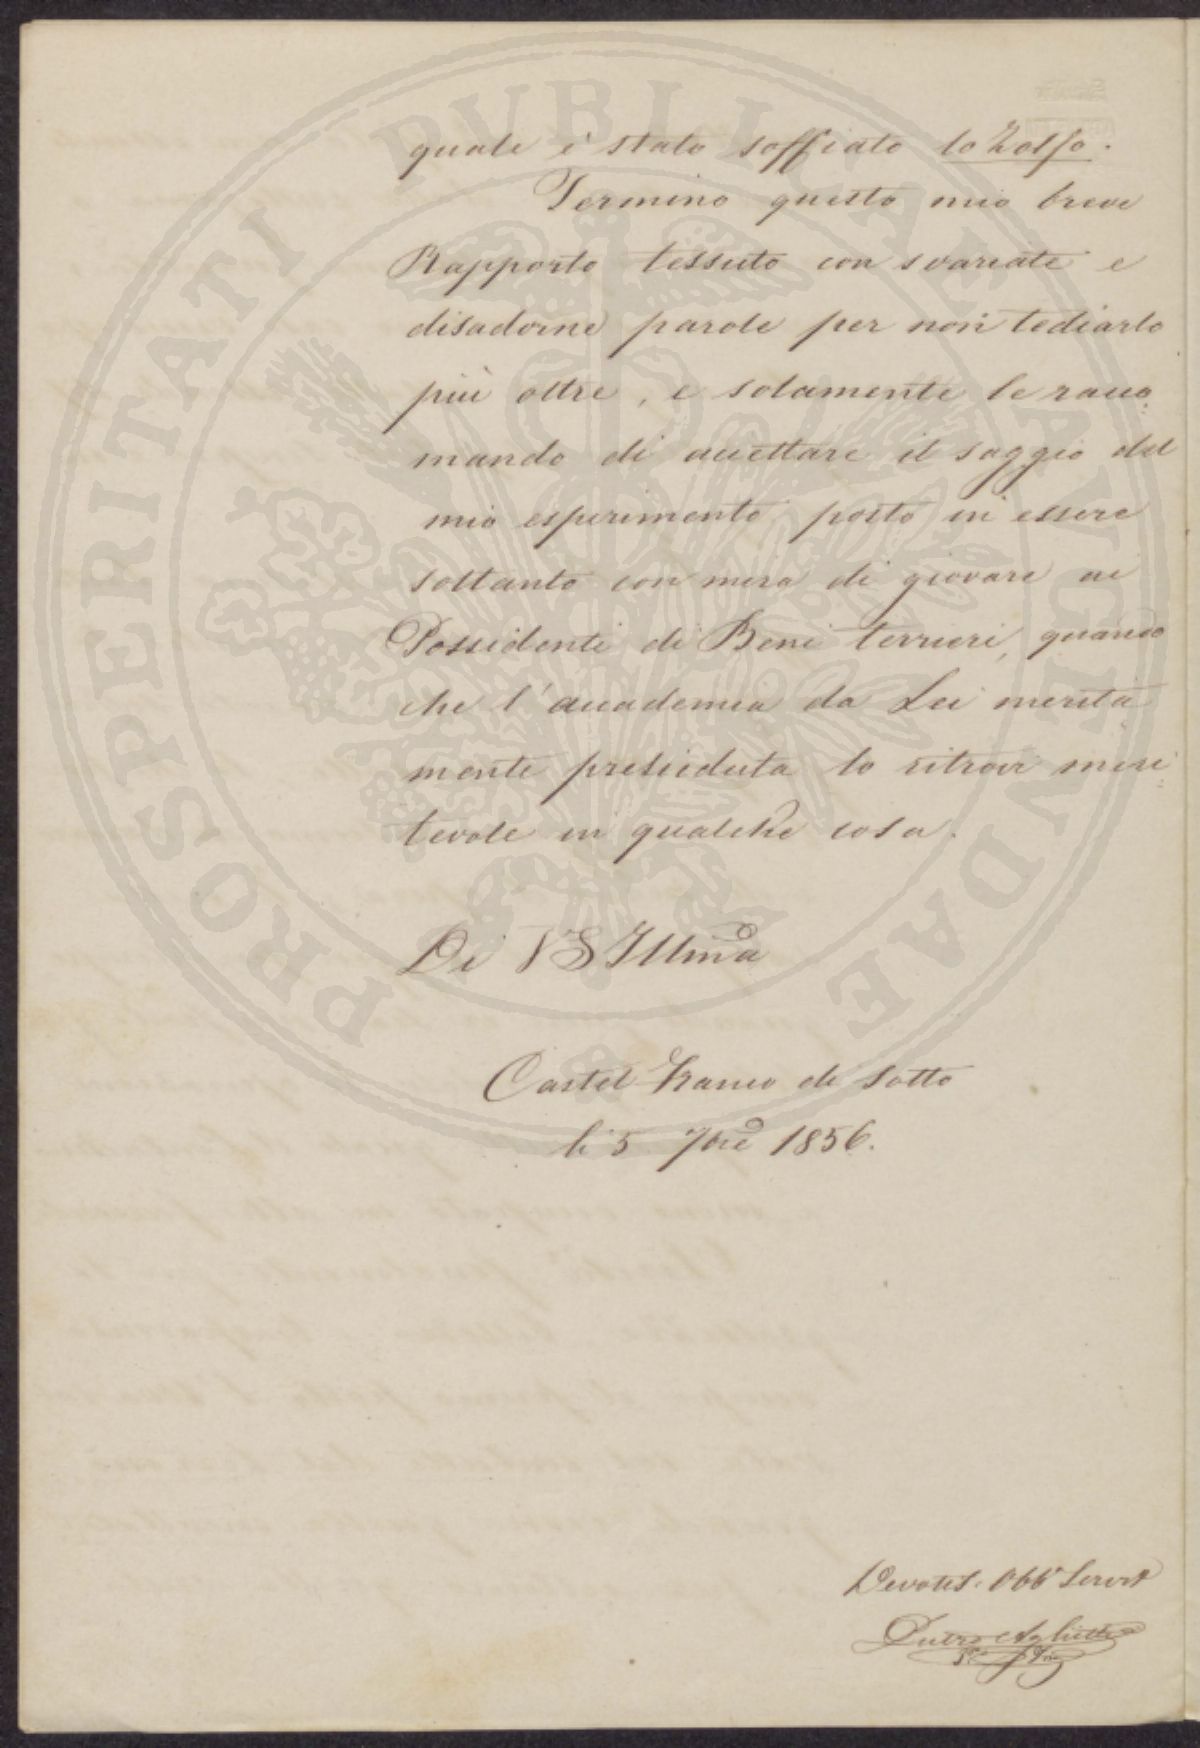 quale è stato soffiato lo Zolfo.
Termino questo mio breve
Rapporto tessuto con svariate e
disadorne parole per non tediarlo
più oltre, e solamente le racco
mando di accettare il saggio del
mio esperimento posto in essere
soltanto con mira di giovare ai
Possidenti di Beni terrieri, quando
che l'accademia da Lei merita
mente presieduta lo ritrovi meri
tevole in qualche cosa.
Di VS Illma
Castel Franco di Sotto
li 5 7bre 1856.
Devotis. Obb Servit
Pietro
PROSPERITATI PUBLICAE AUGENDAE